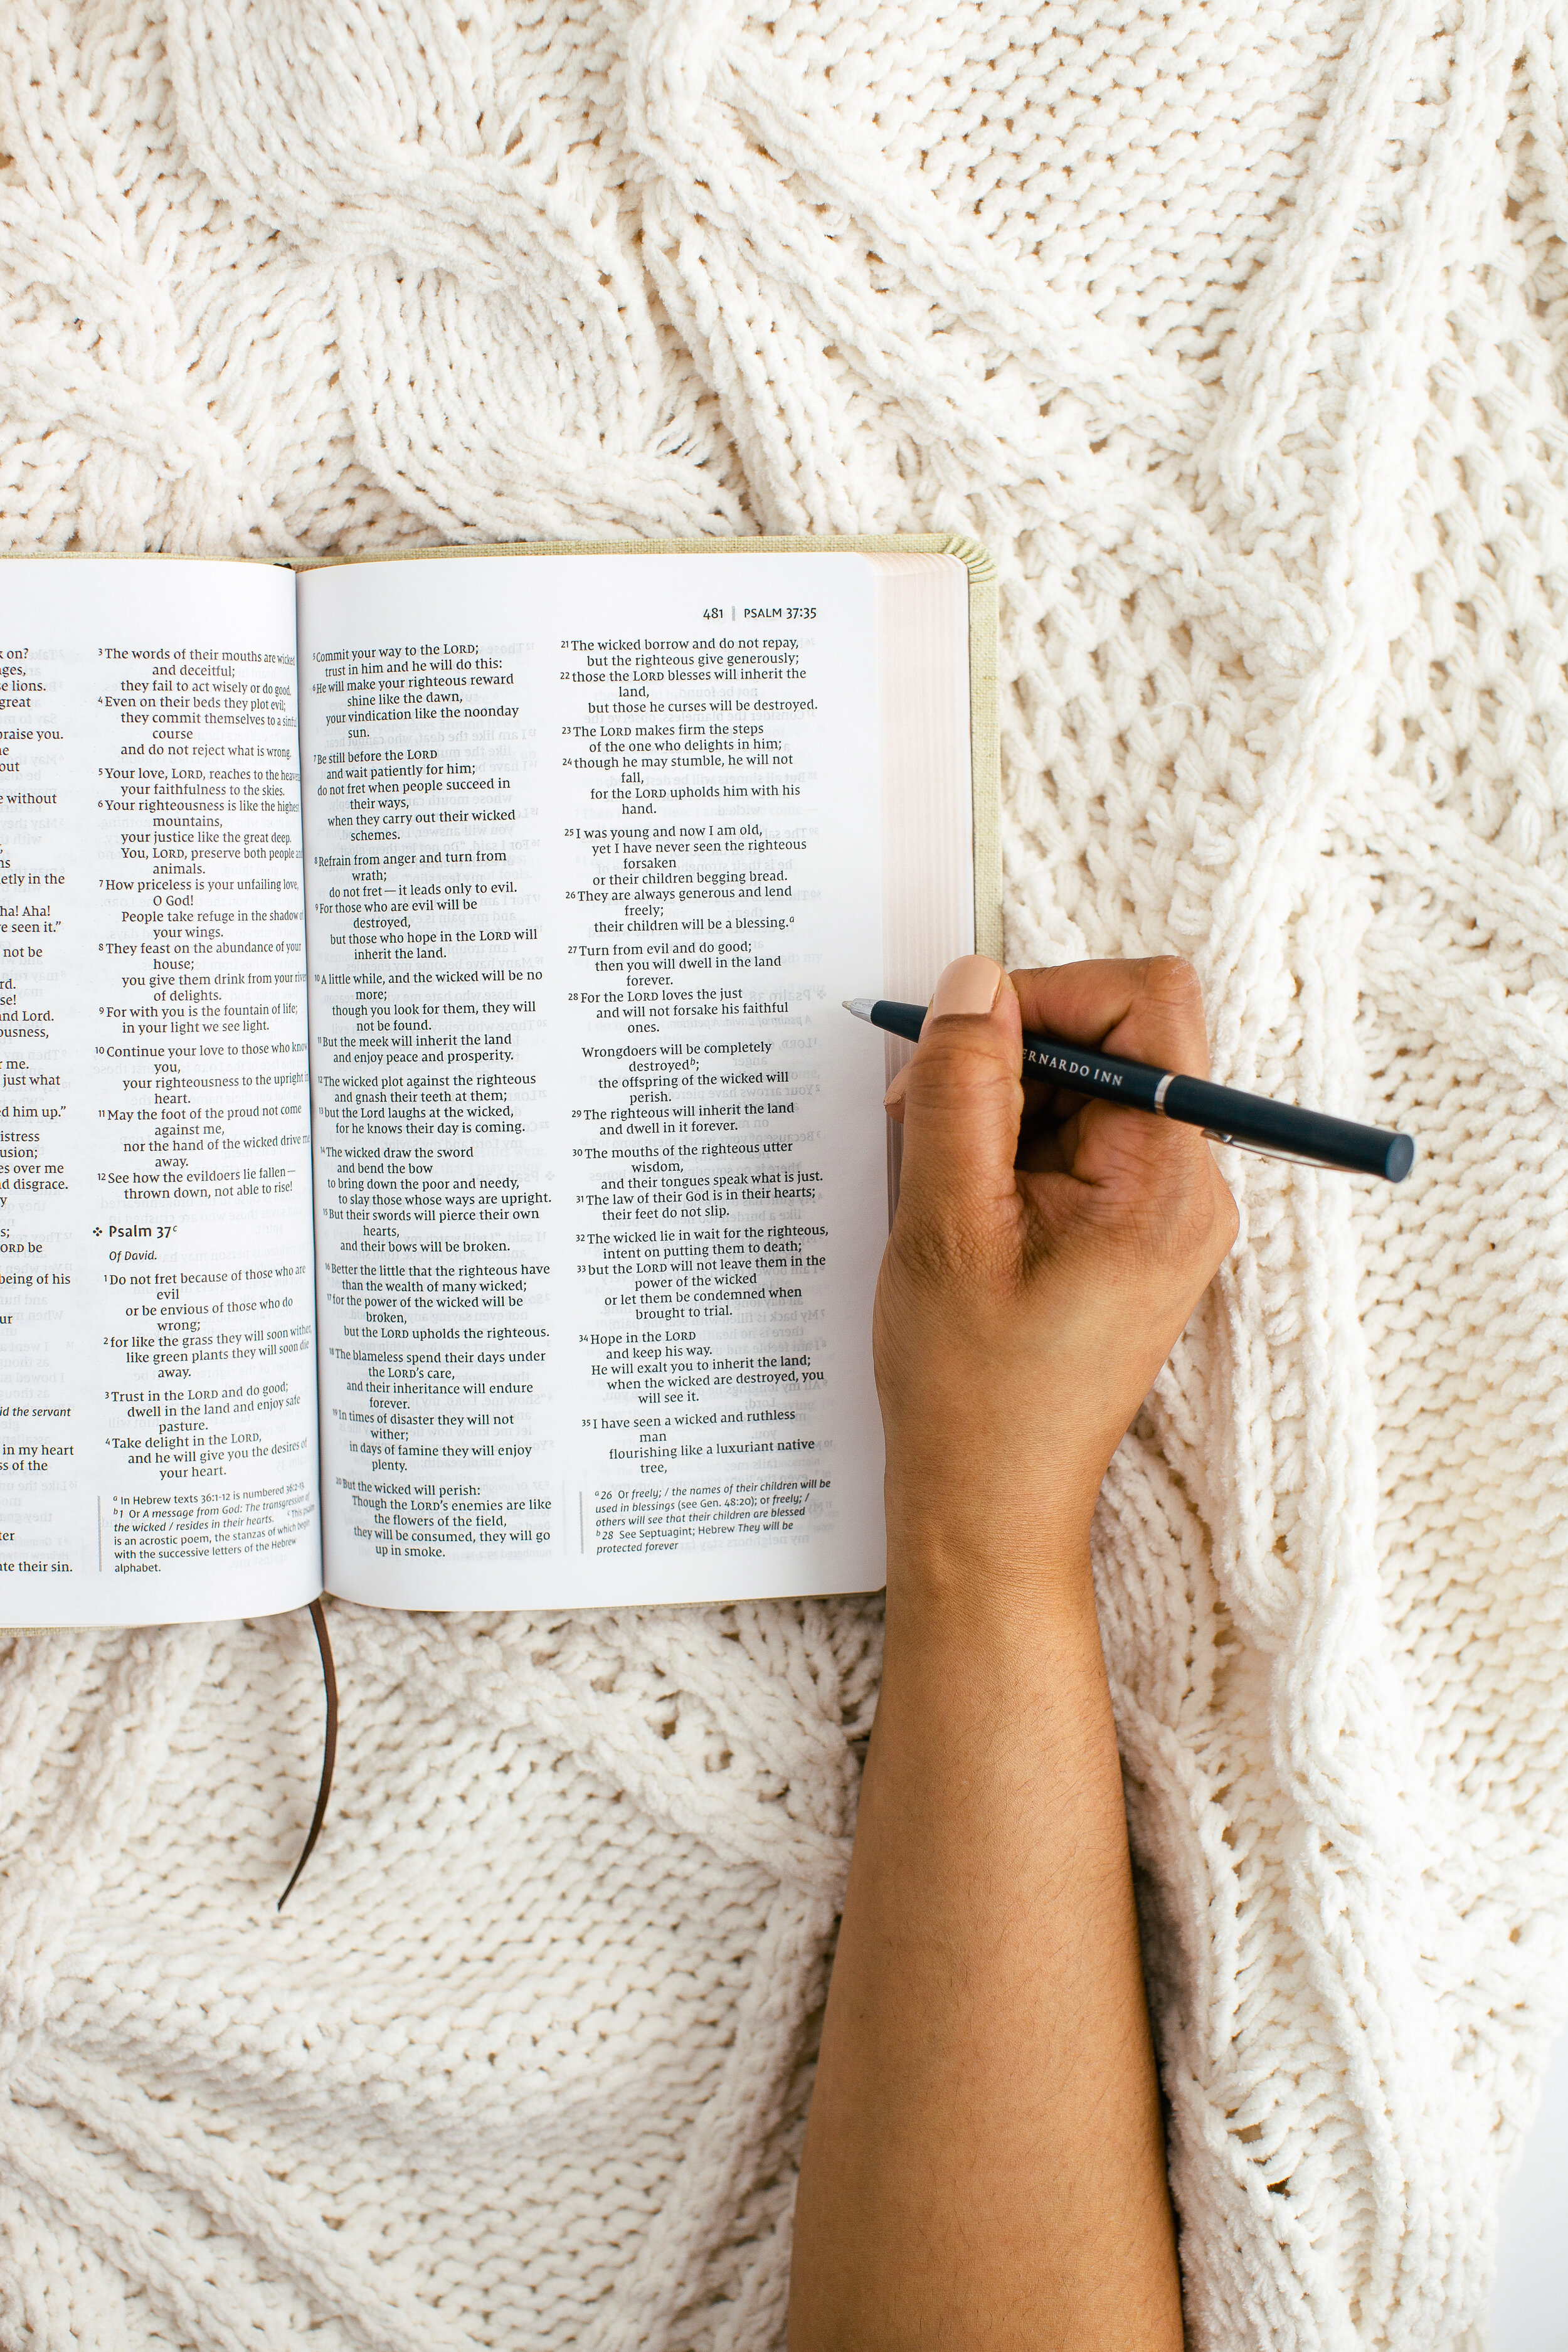 k on?
ges,
e lions.
great
praise you.
ne
out
e without
ns
etly in the
ha! Aha!
e seen it.”
not be
rd.
se!
nd Lord.
ousness,
r me.
just what
ed him up.”
istress
usion;
es over me
d disgrace.
y
s;
ORD be
being of his
ur
id the servant
in my heart
ss of the
ter
ate their sin.
3 The words of their mouths are wicked
and deceitful;
they fail to act wisely or do good.
4 Even on their beds they plot evil;
they commit themselves to a sinful
course
and do not reject what is wrong.
5 Your love, LORD, reaches to the heavens,
your faithfulness to the skies.
6 Your righteousness is like the highest
mountains,
your justice like the great deep.
You, LORD, preserve both people and
animals.
7 How priceless is your unfailing love,
O God!
People take refuge in the shadow of
your wings.
8 They feast on the abundance of your
house;
you give them drink from your river
of delights.
9 For with you is the fountain of life;
in your light we see light.
10 Continue your love to those who know
you,
your righteousness to the upright in
heart.
11 May the foot of the proud not come
against me,
nor the hand of the wicked drive me
away.
12 See how the evildoers lie fallen—
thrown down, not able to rise!
Psalm 37c
Of David.
1 Do not fret because of those who are
evil
or be envious of those who do
wrong;
2 for like the grass they will soon wither,
like green plants they will soon die
away.
3 Trust in the LORD and do good;
dwell in the land and enjoy safe
pasture.
4 Take delight in the LORD,
and he will give you the desires of
your heart.
a In Hebrew texts 36:1-12 is numbered 36:2-13.
b 1 Or A message from God: The transgression of
the wicked / resides in their hearts. c This psalm
is an acrostic poem, the stanzas of which begin
with the successive letters of the Hebrew
alphabet.
481 | PSALM 37:35
5 Commit your way to the LORD;
trust in him and he will do this:
6 He will make your righteous reward
shine like the dawn,
your vindication like the noonday
sun.
7 Be still before the LORD
and wait patiently for him;
do not fret when people succeed in
their ways,
when they carry out their wicked
schemes.
8 Refrain from anger and turn from
wrath;
do not fret—it leads only to evil.
9 For those who are evil will be
destroyed,
but those who hope in the LORD will
inherit the land.
10 A little while, and the wicked will be no
more;
though you look for them, they will
not be found.
11 But the meek will inherit the land
and enjoy peace and prosperity.
12 The wicked plot against the righteous
and gnash their teeth at them;
13 but the Lord laughs at the wicked,
for he knows their day is coming.
14 The wicked draw the sword
and bend the bow
to bring down the poor and needy,
to slay those whose ways are upright.
15 But their swords will pierce their own
hearts,
and their bows will be broken.
16 Better the little that the righteous have
than the wealth of many wicked;
17 for the power of the wicked will be
broken,
but the LORD upholds the righteous.
18 The blameless spend their days under
the LORD’s care,
and their inheritance will endure
forever.
19 In times of disaster they will not
wither;
in days of famine they will enjoy
plenty.
20 But the wicked will perish:
Though the LORD’s enemies are like
the flowers of the field,
they will be consumed, they will go
up in smoke.
21 The wicked borrow and do not repay,
but the righteous give generously;
22 those the LORD blesses will inherit the
land,
but those he curses will be destroyed.
23 The LORD makes firm the steps
of the one who delights in him;
24 though he may stumble, he will not
fall,
for the LORD upholds him with his
hand.
25 I was young and now I am old,
yet I have never seen the righteous
forsaken
or their children begging bread.
26 They are always generous and lend
freely;
their children will be a blessing.a
27 Turn from evil and do good;
then you will dwell in the land
forever.
28 For the LORD loves the just
and will not forsake his faithful
ones.
Wrongdoers will be completely
destroyedb;
the offspring of the wicked will
perish.
29 The righteous will inherit the land
and dwell in it forever.
30 The mouths of the righteous utter
wisdom,
and their tongues speak what is just.
31 The law of their God is in their hearts;
their feet do not slip.
32 The wicked lie in wait for the righteous,
intent on putting them to death;
33 but the LORD will not leave them in the
power of the wicked
or let them be condemned when
brought to trial.
34 Hope in the LORD
and keep his way.
He will exalt you to inherit the land;
when the wicked are destroyed, you
will see it.
35 I have seen a wicked and ruthless
man
flourishing like a luxuriant native
tree,
a 26 Or freely; / the names of their children will be
used in blessings (see Gen. 48:20); or freely; /
others will see that their children are blessed
b 28 See Septuagint; Hebrew They will be
protected forever
ERNARDO INN